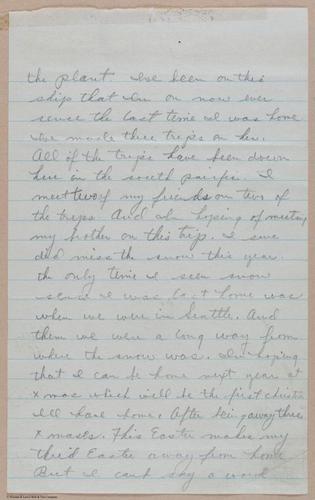 the plant Ive been on this
ship that Im on now ever
sence the last time I was home
Ive made three trips on her.
All of the trips have been down
here in the south pacific. I
meet two of my friends on two of
the trips. And am hoping of meeting
my brother on this trip. I sure
did miss the snow this year.
the only time I seen snow
sence I was last home was
when we were in Seattle. And
then we were a long way from
where the snow was. Im hoping
that I can be home next year at
xmas which will be the first christ
Ill have home. After being away three
xmases. This Easter makes my
third Easter away from home
But I cant say a word